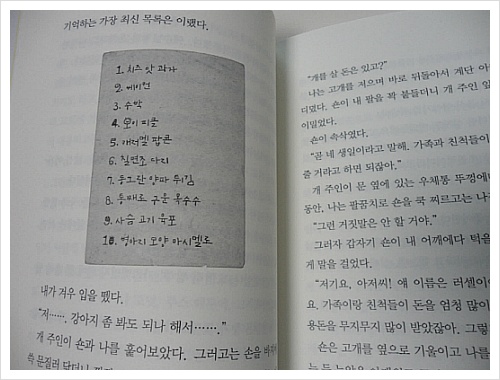 기억하는 가장 최신 목록은 이랬다.
1. 치즈 맛 과자
2. 베이컨
3. 수박
4. 오이 피클
5. 캐러멜 팝콘
6. 칠면조 다리
7. 동그란 양파 튀김
8. 통째로 구운 옥수수
9. 사슴 고기 육포
10. 병아리 모양 마시멜로
내가 겨우 입을 뗐다.
"저……. 강아지 좀 봐도 되나 해서……."
개 주인이 숀과 나를 훑어보았다. 그러고는 손을 바지에
쓱 문질러
"개를 살 돈은 있고?"
나는 고개를 저으며 바로 뒤돌아서 계단 아
디뎠다. 숀이 내 팔을 꽉 붙들더니 개 주인 앞
이밀었다.
숀이 속삭였다.
"곧 네 생일이라고 말해. 가족과 친척들이
줄 거라고 하면 되잖아."
개 주인이 문 옆에 있는 우체통 뚜껑에
동안, 나는 팔꿈치로 숀을 쿡 찌르고는 나
"그런 거짓말은 안 할 거야."
그러자 갑자기 숀이 내 어깨에 턱을
게 말을 걸었다.
"저기요, 아저씨! 얘 이름은 러셀이
요. 가족이랑 친척들이 돈을 엄청 많이
용돈을 무지무지 많이 받았잖아. 그
숀은 고개를 옆으로 기울이고 나를